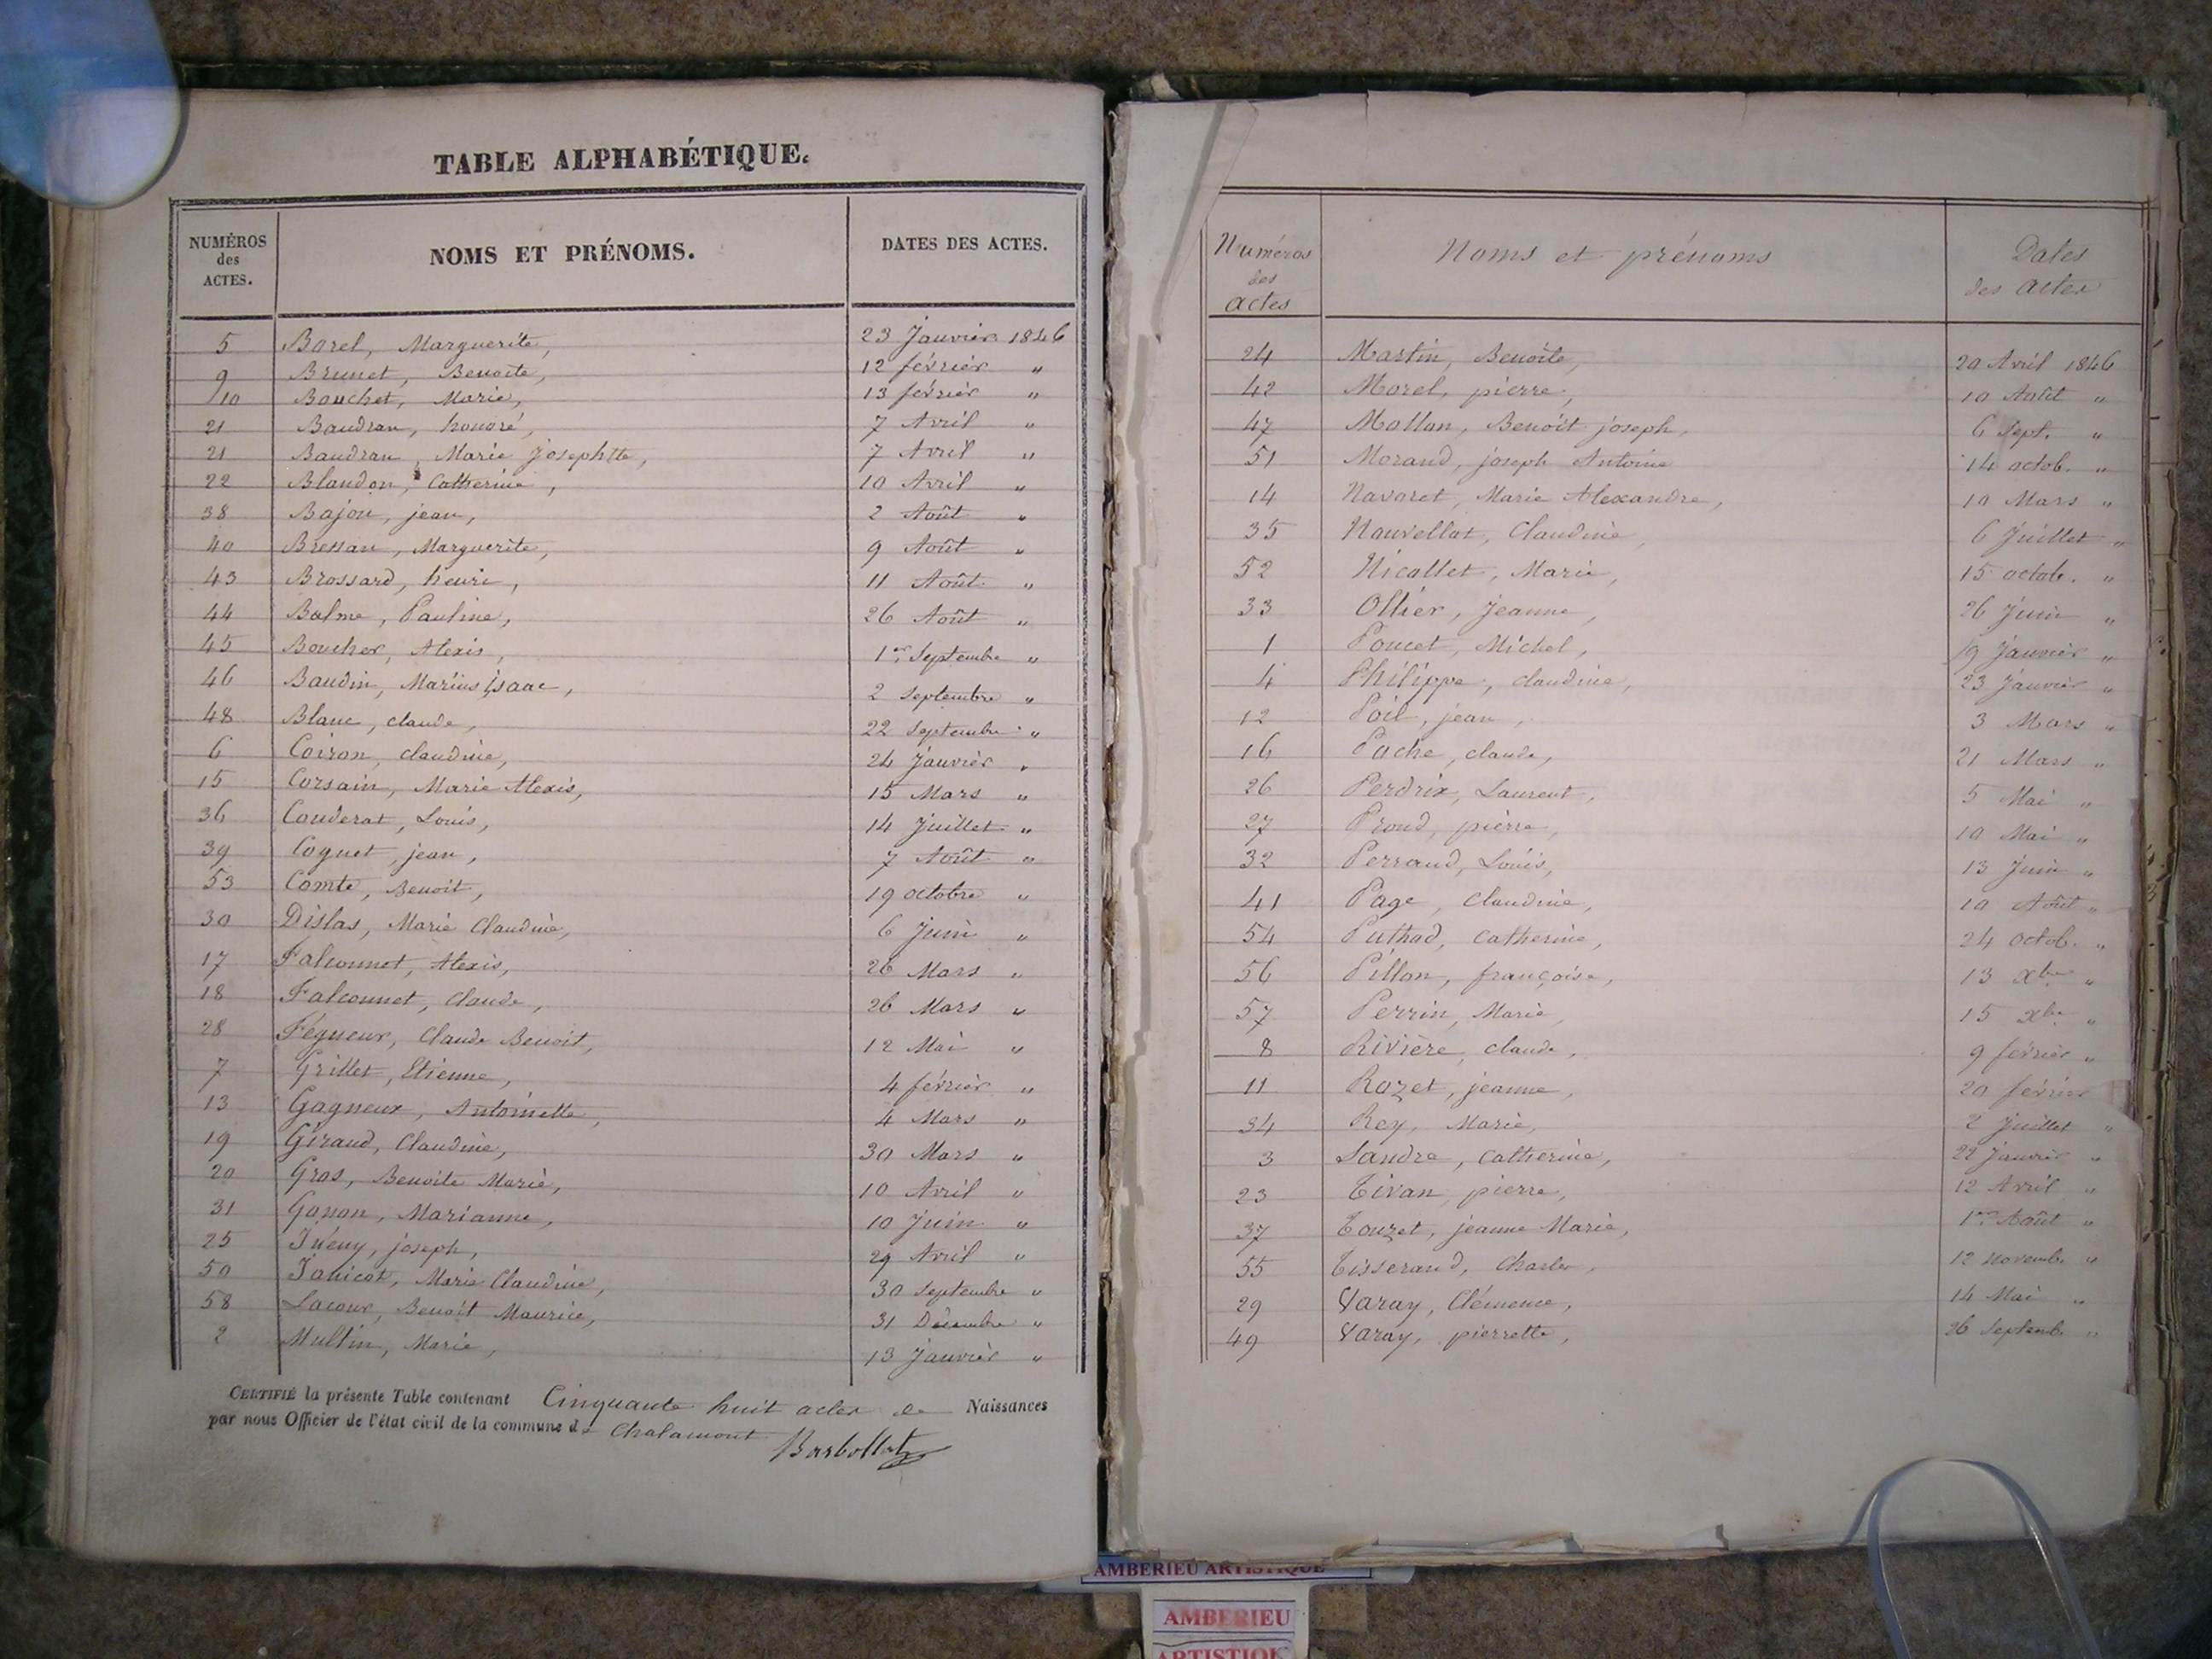 TABLE ALPHABÉTIQUE.
NUMÉROS des ACTES. NOMS ET PRÉNOMS. DATES DES ACTES.
5 Borel, Marguerite, 23 Janvier 1846
9 Brunet, Benoite, 12 février "
10 Bouchet, Marie, 13 février "
21 Baudran, honoré, 7 Avril "
21 Baudran, Marie Josephtte, 7 Avril "
22 Blandon, Catherine, 10 Avril "
38 Bajon, jean, 2 Août "
40 Bressan, Marguerite, 9 Août "
43 Brossard, henri, 11 Août "
44 Balme, Pauline, 26 Août "
45 Boucher, Alexis, 1er Septembre "
46 Baudin, Marius isaac, 2 Septembre "
48 Blanc, claude, 22 Septembre "
6 Coiron, claudine, 24 Janvier "
15 Corsain, Marie Alexis, 15 Mars "
36 Couderat, Louis, 14 Juillet "
39 Coquet, jean, 7 Août "
53 Comte, Benoit, 19 octobre "
30 Dislas, Marie Claudine, 6 Juin "
17 Falconnet, Alexis, 26 Mars "
18 Falconnet, Claude, 26 Mars "
28 Fégueur, Claude Benoit, 12 Mai "
7 Grillet, Etienne, 4 février "
13 Gagneux, Antoinette, 4 Mars "
19 Giraud, Claudine, 30 Mars "
20 Gros, Benoite Marie, 10 Avril "
31 Gonon, Marianne, 10 Juin "
25 joseph, 29 Avril "
50 Janicot, Marie Claudine, 30 Septembre "
58 Lacour, Benoit Maurice, 31 Décembre "
2 Multin, Marie, 13 Janvier "
CERTIFIÉ la présente Table contenant Cinquante huit actes de Naissances
par nous Officier de l'état civil de la commune d Chalamont
Barbollat
Numéros des actes Noms et prénoms Dates des actes
24 Martin, Benoite, 20 Avril 1846
42 Morel, pierre, 10 Août "
47 Mollon, Benoit joseph, 6 Sept. "
51 Morand, joseph Antoine 14 octob. "
14 Navoret, Marie Alexandre, 10 Mars "
35 Nouvellat, Claudine, 6 Juillet "
52 Nicollet, Marie, 15 octob. "
33 Ollier, Jeanne, 26 Juin "
1 Poncet, Michel, 19 Janvier "
4 Philippe, claudine, 23 Janvier "
12 Poil, jean, 3 Mars "
16 Pache, claude, 21 Mars "
26 Perdrix, Laurent, 5 Mai "
27 Prond, pierre, 10 Mai "
32 Perraud, Louis, 13 Juin "
41 Page, Claudine, 10 Août "
54 Puthod, Catherine, 24 octob. "
56 Pillon, françoise, 13 xbre "
57 Perrin, Marie, 15 xbre "
8 Rivière, claude, 9 février "
11 Rozet, jeanne, 20 février
34 Rey, Marie, 2 Juillet "
3 Sandre, Catherine, 22 Janvier "
23 Tivan, pierre, 12 Avril "
37 Touzet, jeanne Marie, 1er Août "
55 Tisserand, Charles, 12 Novembe "
29 Varay, Clémence, 14 Mai "
49 Varay, pierrette, 26 Septemb. "
AMBERIEU ARTISTIQUE
AMBERIEU
ARTISTIQUE